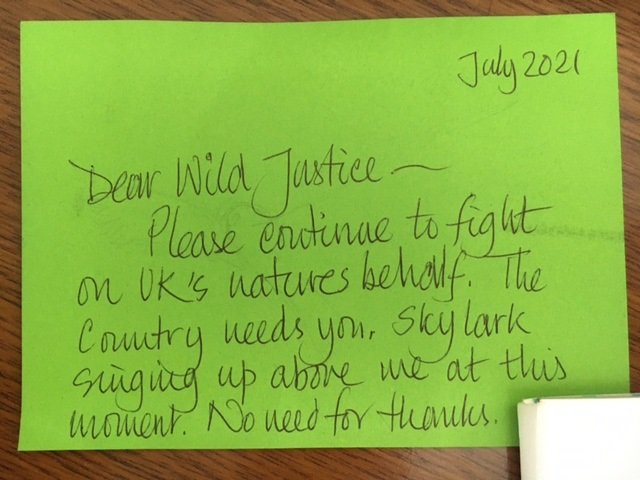 July 2021
Dear Wild Justice —
Please continue to fight
on UK's natures behalf. The
Country needs you. Skylark
singing up above me at this
moment. No need for thanks.